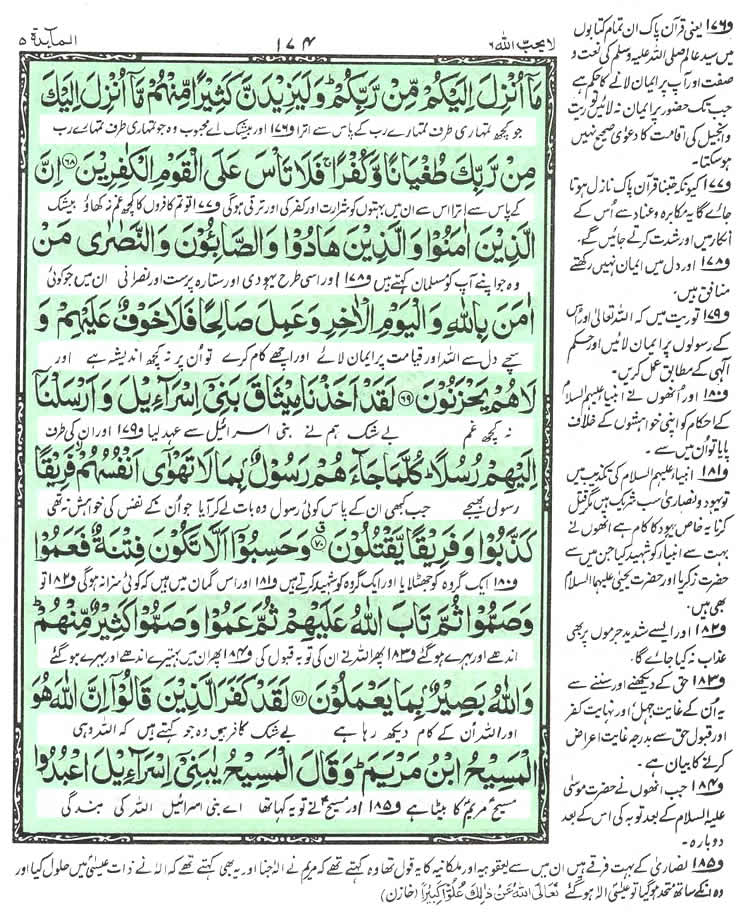 المآئدة ۵
۱۷۴
لا یحب اللہ ۶
مَآ اُنْزِلَ اِلَیْكُمْ مِّنْ رَّبِّكُمْ ؕ وَ لَیَزِیْدَنَّ كَثِیْرًا مِّنْهُمْ مَّاۤ اُنْزِلَ اِلَیْكَ
جو کچھ تمہاری طرف تمہارے رب کے پاس سے اترا و۱۷۶ اور بیشک اے محبوب وہ جو تمہاری طرف تمہارے رب
مِنْ رَّبِّكَ طُغْیَانًا وَّ كُفْرًا ۚ فَلَا تَاْسَ عَلَى الْقَوْمِ الْكٰفِرِیْنَ ﴿۶۸﴾ اِنَّ
کے پاس سے اترا اس سے ان میں بہتوں کو شرارت اور کفر کی اور ترقی ہوگی و۱۷۷ تو تم کافروں کا کچھ غم نہ کھاؤ بیشک
الَّذِیْنَ اٰمَنُوْا وَ الَّذِیْنَ هَادُوْا وَ الصّٰبِـُٔوْنَ وَ النَّصٰرٰى مَنْ
وہ جو اپنے آپ کو مسلمان کہتے ہیں و۱۷۸ اور اسی طرح یہودی اور ستارہ پرست اور نصرانی ان میں جو کوئی
اٰمَنَ بِاللّٰهِ وَ الْیَوْمِ الْاٰخِرِ وَ عَمِلَ صَالِحًا فَلَا خَوْفٌ عَلَیْهِمْ وَ
سچے دل سے اللہ اور قیامت پر ایمان لائے اور اچھے کام کرے تو اُن پر نہ کچھ اندیشہ ہے اور
لَا هُمْ یَحْزَنُوْنَ ﴿۶۹﴾ لَقَدْ اَخَذْنَا مِیْثَاقَ بَنِیْۤ اِسْرَآءِیْلَ وَ اَرْسَلْنَاۤ
نہ کچھ غم بے شک ہم نے بنی اسرائیل سے عہد لیا و۱۷۹ اور ان کی طرف
اِلَیْهِمْ رُسُلًا ؕ كُلَّمَا جَآءَهُمْ رَسُوْلٌۢ بِمَا لَا تَهْوٰۤى اَنْفُسُهُمْ ۙ فَرِیْقًا
رسول بھیجے جب کبھی ان کے پاس کوئی رسول وہ بات لے کر آیا جو اُن کے نفس کی خواہش نہ تھی
كَذَّبُوْا وَ فَرِیْقًا یَّقْتُلُوْنَ ﴿۷۰﴾ وَ حَسِبُوْۤا اَلَّا تَكُوْنَ فِتْنَةٌ فَعَمُوْا
و۱۸۰ ایک گروہ کو جھٹلایا اور ایک گروہ کو شہید کرتے ہیں و۱۸۱ اور اس گمان میں ہیں کہ کوئی سزا نہ ہوگی و۱۸۲ تو
وَ صَمُّوْا ثُمَّ تَابَ اللّٰهُ عَلَیْهِمْ ثُمَّ عَمُوْا وَ صَمُّوْا كَثِیْرٌ مِّنْهُمْ ؕ
اندھے اور بہرے ہو گئے و۱۸۳ پھر اللہ نے ان کی توبہ قبول کی و۱۸۴ پھر ان میں بہتیرے اندھے اور بہرے ہو گئے
وَ اللّٰهُ بَصِیْرٌۢ بِمَا یَعْمَلُوْنَ ﴿۷۱﴾ لَقَدْ كَفَرَ الَّذِیْنَ قَالُوْۤا اِنَّ اللّٰهَ هُوَ
اور اللہ اُن کے کام دیکھ رہا ہے بے شک کافر ہیں وہ جو کہتے ہیں کہ اللہ وہی
الْمَسِیْحُ ابْنُ مَرْیَمَ ؕ وَ قَالَ الْمَسِیْحُ یٰبَنِیْۤ اِسْرَآءِیْلَ اعْبُدُوا
مسیح مریم کا بیٹا ہے و۱۸۵ اور مسیح نے تو یہ کہا تھا اے بنی اسرائیل اللہ کی بندگی
و۱۷۶ یعنی قرآن پاک ان تمام کتابوں
میں سید عالم صلی اللہ علیہ وسلم کی نعت و
صفت اور آپ پر ایمان لانے کا حکم ہے
جب تک حضور پر ایمان نہ لائیں توریت
و انجیل کی اقامت کا دعویٰ صحیح نہیں
ہو سکتا۔
و۱۷۷ کیونکہ جتنا قرآن پاک نازل ہوتا
جائے گا یہ مکابرہ و عناد سے اُس کے
انکار میں اور شدت کرتے جائیں گے۔
و۱۷۸ اور دل میں ایمان نہیں رکھتے
منافق ہیں۔
و۱۷۹ توریت میں کہ اللہ تعالیٰ اور اس
کے رسولوں پر ایمان لائیں اور حکم
الٰہی کے مطابق عمل کریں۔
و۱۸۰ اور اُنھوں نے انبیاء علیہم السلام
کے احکام کو اپنی خواہشوں کے خلاف
پایا تو اُن میں سے ۔
و۱۸۱ انبیاء علیہم السلام کی تکذیب میں
تو یہود و نصاریٰ سب شریک ہیں مگر قتل
کرنا یہ خاص یہود کا کام ہے انھوں نے
بہت سے انبیاء کو شہید کیا جن میں سے
حضرت زکریا اور حضرت یحییٰ علیہما السلام
بھی ہیں۔
و۱۸۲ اور ایسے شدید جرموں پر بھی
عذاب نہ کیا جائے گا۔
و۱۸۳ حق کے دیکھنے اور سننے سے
یہ اُن کے غایت جہل اور نہایت کفر
اور قبول حق سے بدرجہ غایت اعراض
کرنے کا بیان ہے ۔
و۱۸۴ جب انھوں نے حضرت موسیٰ
علیہ السلام کے بعد توبہ کی اس کے بعد
دوبارہ ۔
و۱۸۵ نصاریٰ کے بہت فرقے ہیں ان میں سے یعقوبیہ اور ملکانیہ کا یہ قول تھا وہ کہتے تھے کہ مریم نے الٰہ جنا اور یہ بھی کہتے تھے کہ الٰہ نے ذات عیسیٰ میں حلول کیا اور
وہ انکے ساتھ متحد ہو گیا تو عیسیٰ الٰہ ہو گئے تَعَالَی اللّٰهُ عَنْ ذٰلِكَ عُلُوًّا كَبِیْرًا (خازن)